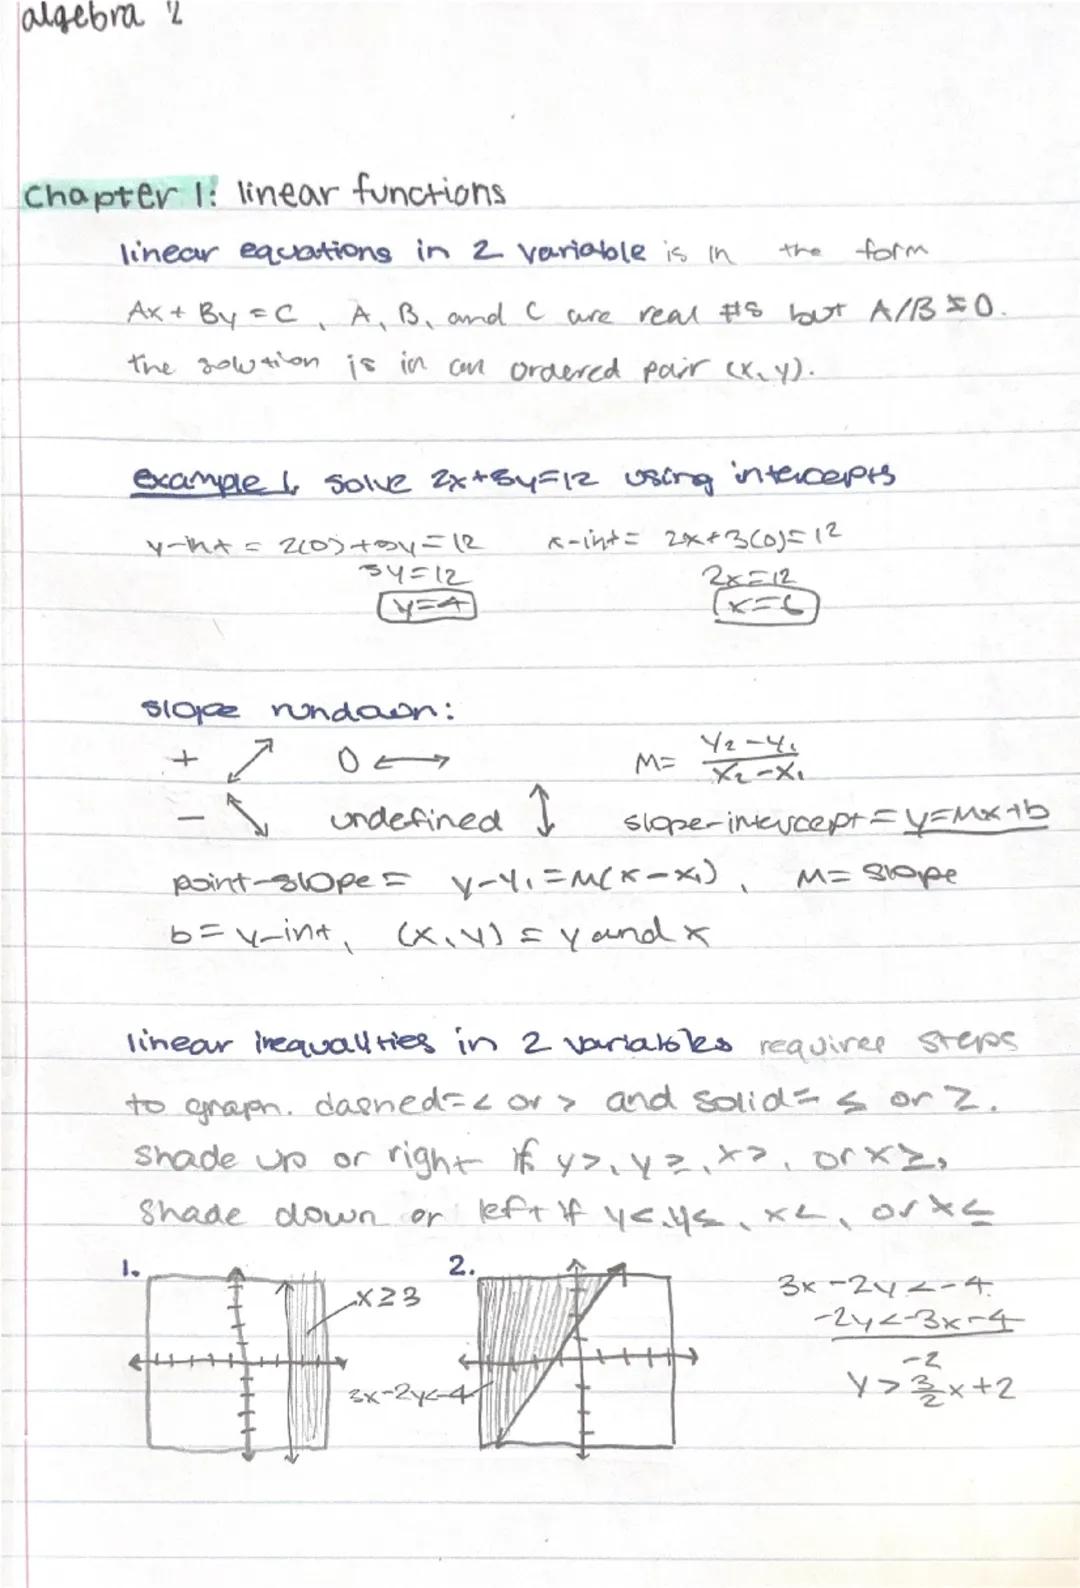 algebra 2
Chapter 1: linear functions
linear equations in 2 variable is in the form
Ax + By = C, A, B, and C are real #s but A/B ≠ 0.
the solution is in an ordered pair (x, y).
example 1. solve 2x+3y=12 using intercepts
y-int = 2(0)+3y=12 x-int = 2x+3(0)=12
3y=12 2x=12
y=4 x=6
slope rundown:
+ ↗ 0 ↔ M= y₂-y₁ / x₂-x₁
- ↘ undefined ↕ slope-intercept = y=Mx+b
point-slope = y-y₁=M(x-x₁), M= slope
b= y-int, (x, y) = y and x
linear inequalities in 2 variables requires steps
to graph. dashed=< or > and solid= ≤ or ≥.
shade up or right if y>, y≥, x>, or x≥,
shade down or left if y<, y≤, x<, or x≤
1. x≥3 2. 3x-2y<-4
3x-2y<-4
-2y<-3x-4
-2
y>3/2x+2